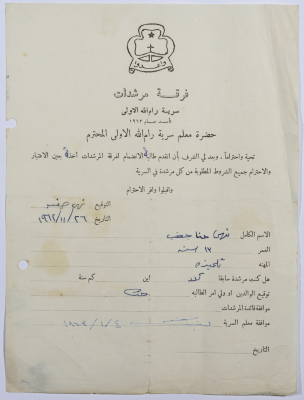 واعدوا
فرقة مرشدات
سرية رام الله الاولى
تأسست سنة ١٩٦٢
حضرة معلم سرية رام الله الاولى المحترم
تحية واحتراماً ، وبعد لي الشرف بأن اتقدم طالبة الانضمام لفرقة المرشدات آخذة بعين الاعتبار
والاحترام جميع الشروط المطلوبة من كل مرشدة في السرية
واقبلوا وافر الاحترام
التوقيع
التاريخ ٢٦/١١/١٩٦٢
الاسم الكامل حنا
العمر ١٢ سنة
المهنه تلميذه
هل كنت مرشدة سابقا اين كم سنة
توقيع الوالدين او ولي امر الطالبه
موافقة قائدة المرشدات
موافقة معلم السرية
التاريخ